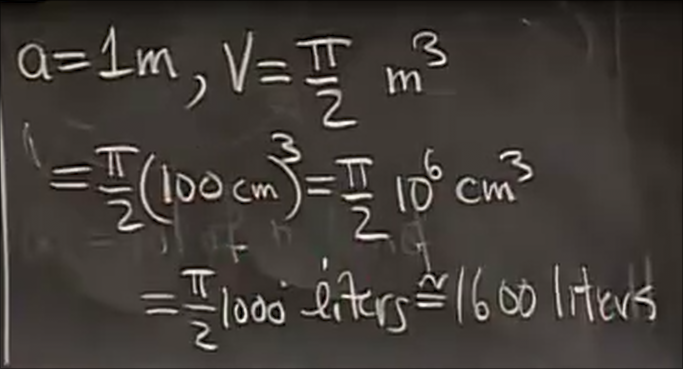 a = 1m, V = π/2 m³
= π/2 (100 cm)³ = π/2 10⁶ cm³
= π/2 1000 liters ≅ 1600 liters